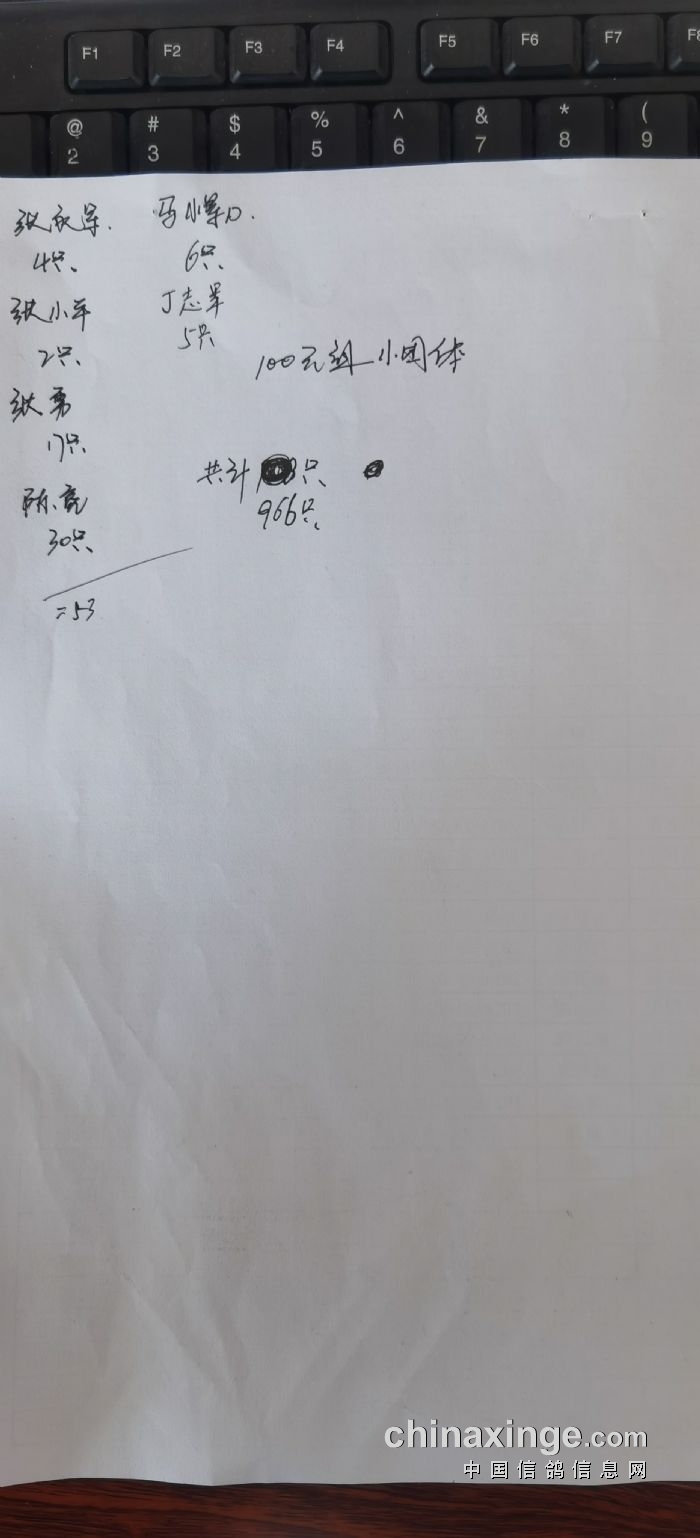 F1 F2 F3 F4 F5 F6 F7 F8
@ # $ % ^ & * (
2 3 4 5 6 7 8 9
张成军.
4只、
张小军
2只、
张勇
17只
陈亮
30只
=53
马小军
6只、
丁志军
5只
100元组 小团体
共计 只、
966只、
chinaxinge.com
中国信鸽信息网